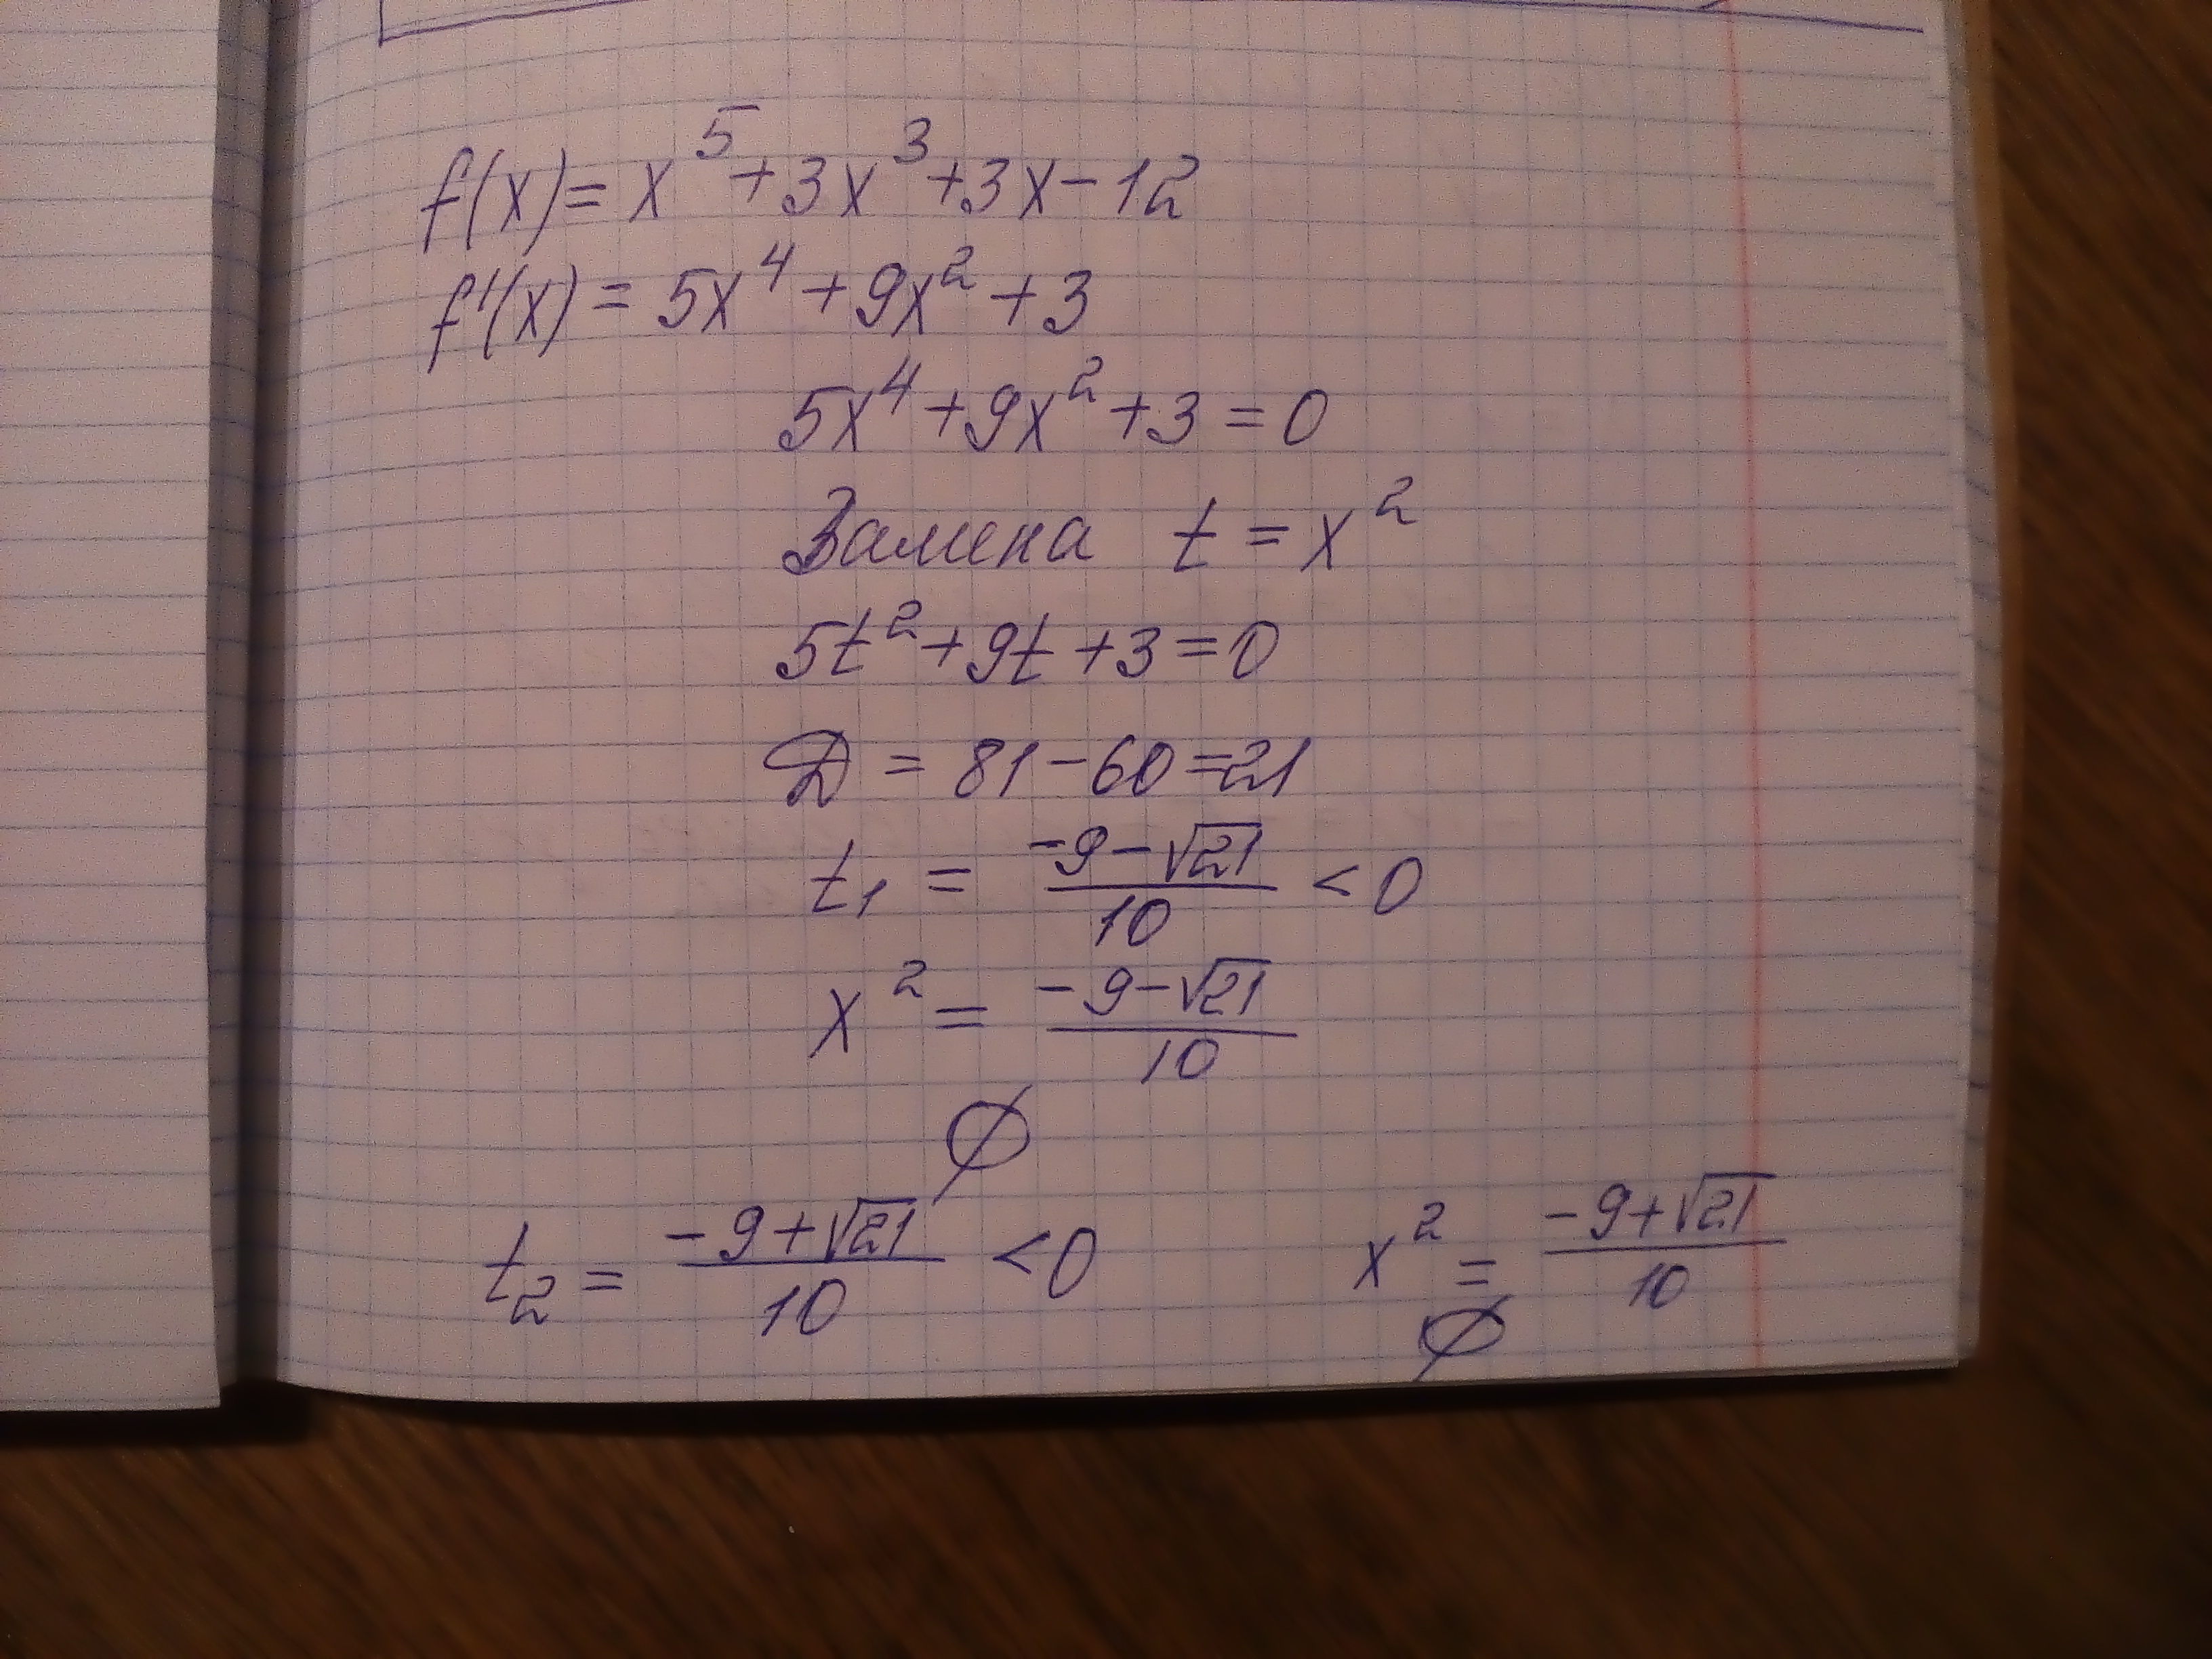 f(x) = x⁵ + 3x³ + 3x - 12
f'(x) = 5x⁴ + 9x² + 3
5x⁴ + 9x² + 3 = 0
Замена t = x²
5t² + 9t + 3 = 0
D = 81 - 60 = 21
t₁ = (-9 - √21)/10 < 0
x² = (-9 - √21)/10
∅
t₂ = (-9 + √21)/10 < 0 x² = (-9 + √21)/10
∅